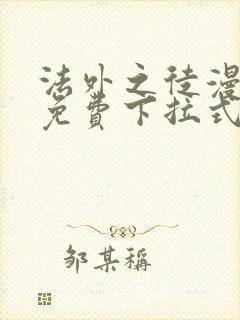 法外之徒漫
免費下拉式
邹某稱